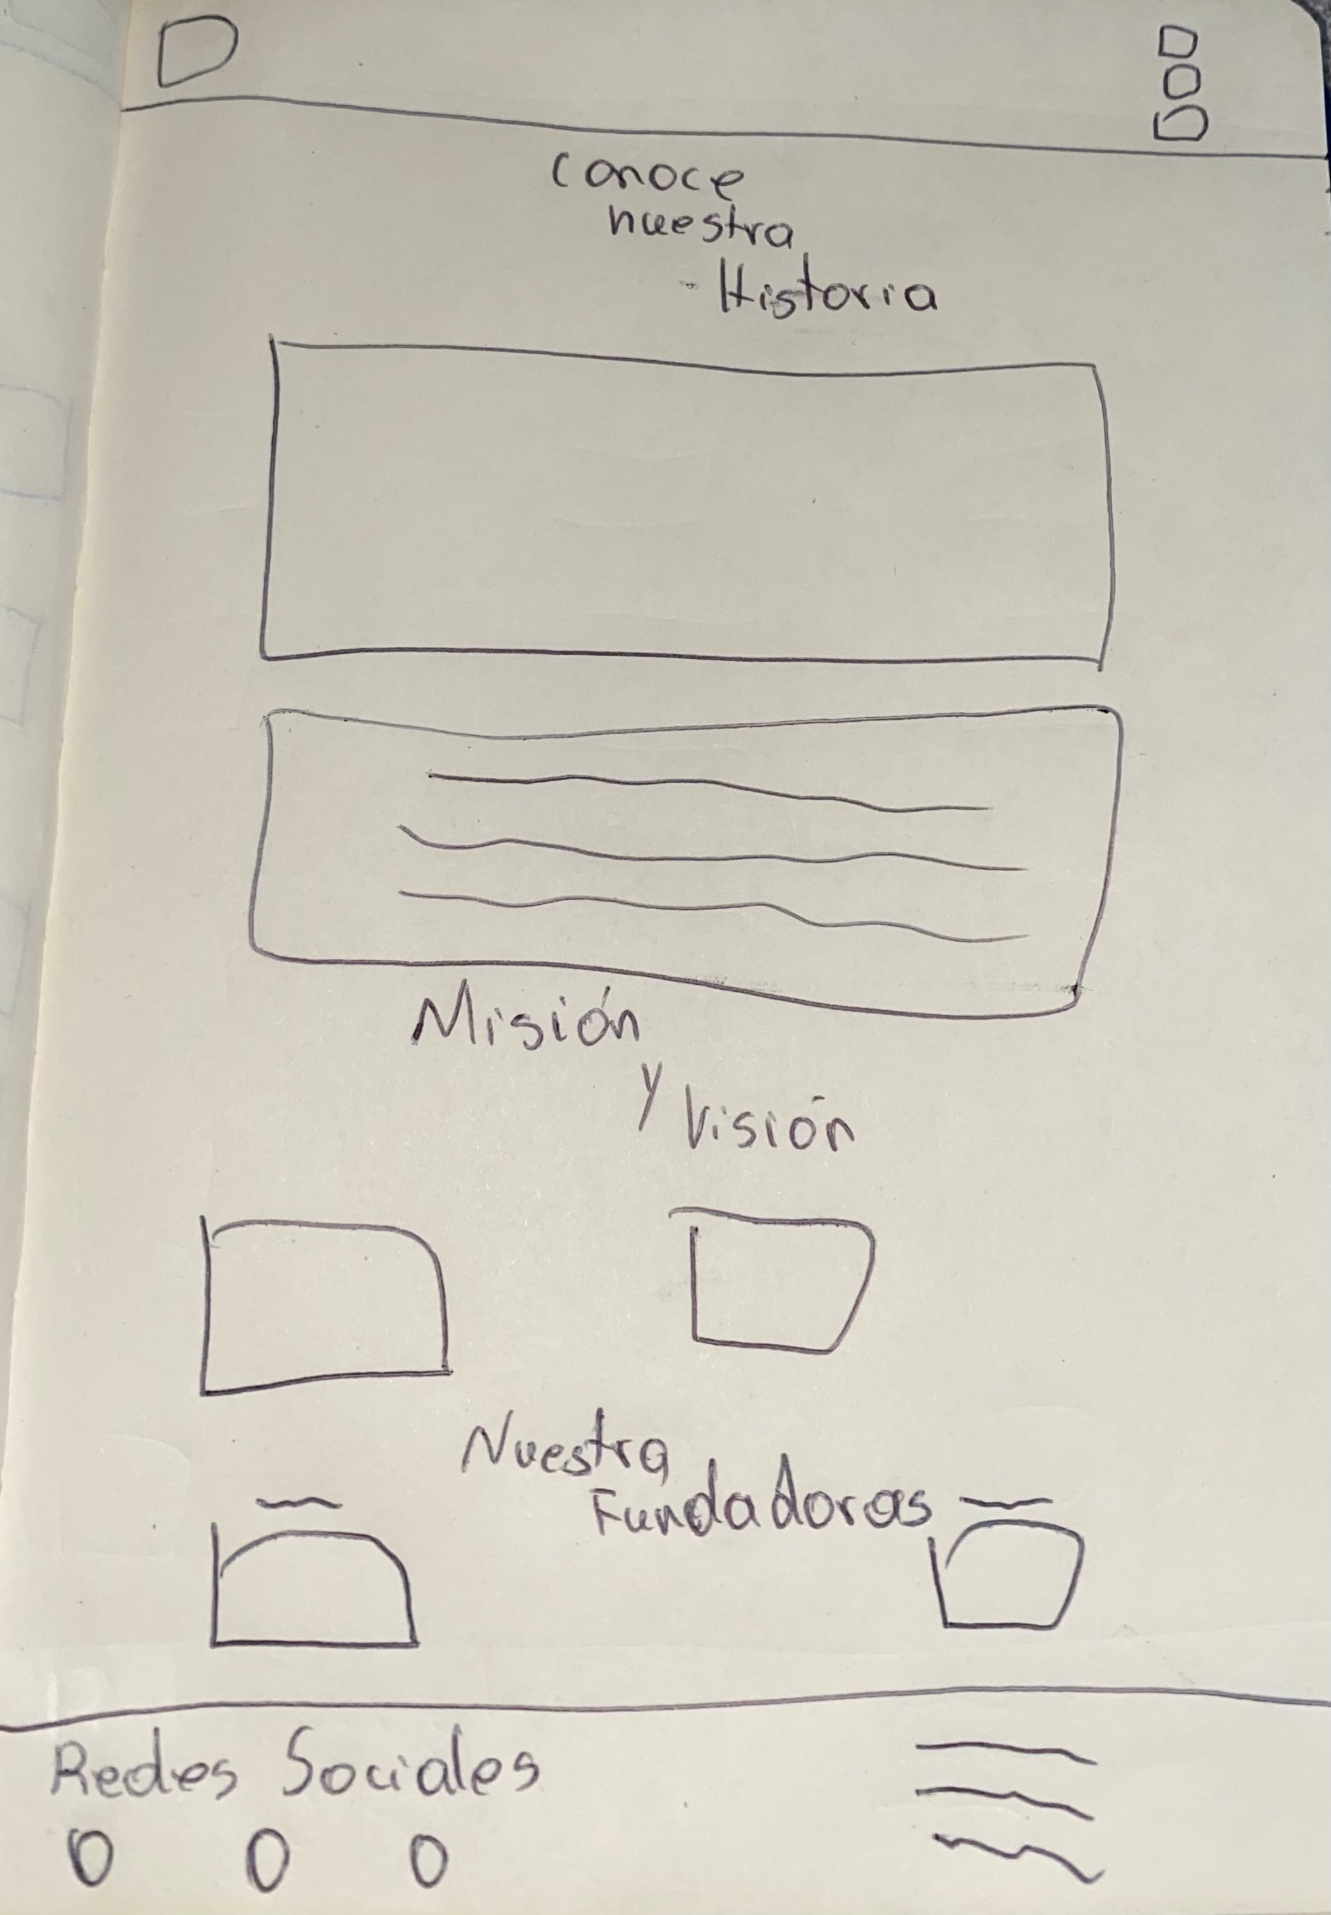 Conoce
nuestra
- Historia
Misión
y Visión
Nuestra
Fundadoras
Redes Sociales